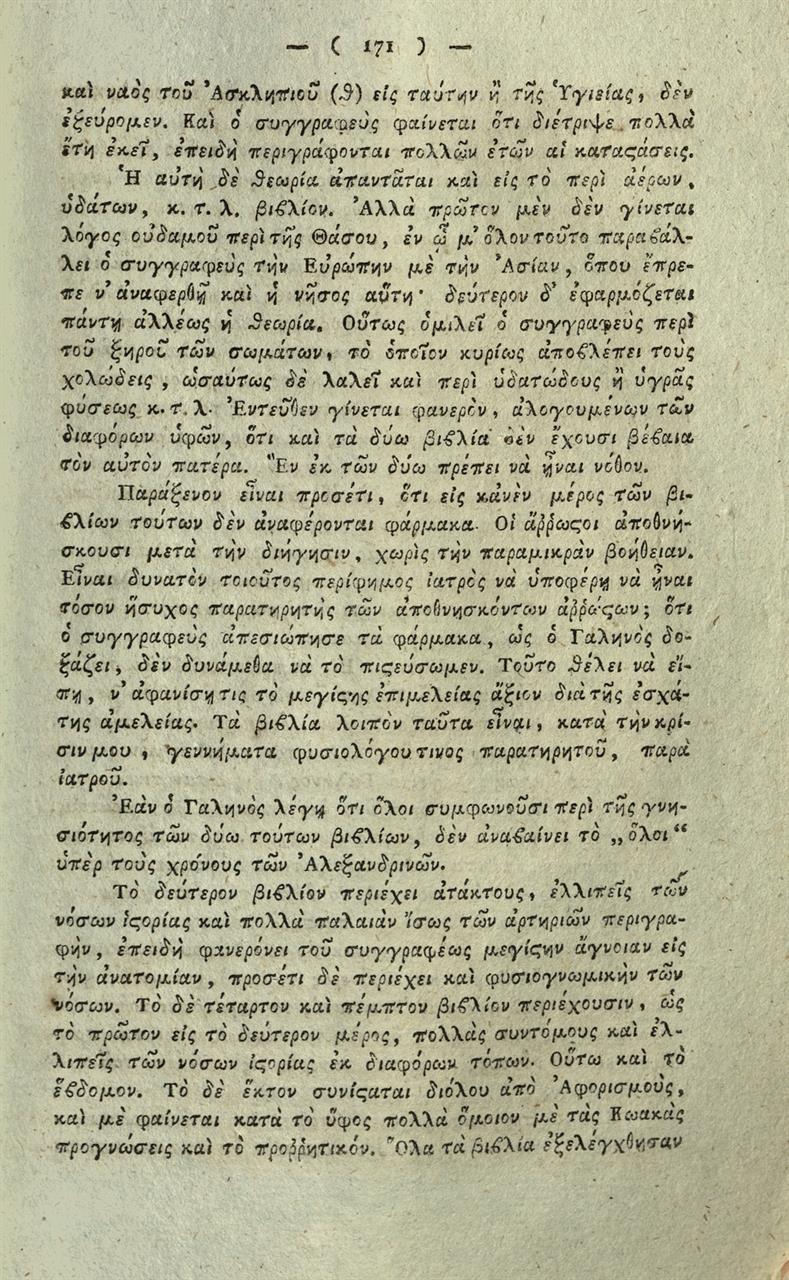 — ( 171 ) —
καὶ ναὸς τοῦ Ἀσκληπιοῦ (ϑ) εἰς ταύτην ἢ τῆς Ὑγιείας, δὲν
ἐξεύρομεν. Καὶ ὁ συγγραφεὺς φαίνεται ὅτι διέτριψε πολλὰ
ἔτη ἐκεῖ, ἐπειδὴ περιγράφονται πολλῶν ἐτῶν αἱ καταϛάσεις.
Ἡ αὐτὴ δὲ ϑεωρία ἀπαντᾶται καὶ εἰς τὸ περὶ ἀέρων,
ὑδάτων, κ. τ. λ. βιϐλίον. Ἀλλὰ πρῶτον μὲν δὲν γίνεται
λόγος οὐδαμοῦ περὶ τῆς Θάσου, ἐν ᾧ μ' ὅλον τοῦτο παραϐάλ-
λει ὁ συγγραφεὺς τὴν Εὐρώπην μὲ τὴν Ἀσίαν, ὅπου ἔπρε-
πε ν' ἀναφερθῇ καὶ ἡ νῆσος αὕτη· δεύτερον δ' ἐφαρμόζεται
πάντῃ ἀλλέως ἡ ϑεωρία. Οὕτως ὁμιλεῖ ὁ συγγραφεὺς περὶ
τοῦ ξηροῦ τῶν σωμάτων, τὸ ὁποῖον κυρίως ἀποϐλέπει τοὺς
χολώδεις, ὡσαύτως δὲ λαλεῖ καὶ περὶ ὑδατώδους ἢ ὑγρᾶς
φύσεως κ. τ. λ. Ἐντεῦθεν γίνεται φανερὸν, ἀλογουμένων τῶν
διαφόρων ὑφῶν, ὅτι καὶ τὰ δύω βιϐλία δὲν ἔχουσι βέϐαια
τὸν αὐτὸν πατέρα. Ἓν ἐκ τῶν δύω πρέπει νὰ ἦναι νόθον.
Παράξενον εἶναι προσέτι, ὅτι εἰς κᾀνὲν μέρος τῶν βι-
ϐλίων τούτων δὲν ἀναφέρονται φάρμακα. Οἱ ἄῤῥωϛοι ἀποθνή-
σκουσι μετὰ τὴν διήγησιν, χωρὶς τὴν παραμικρὰν βοήθειαν.
Εἶναι δυνατὸν τοιοῦτος περίφημος ἰατρὸς νὰ ὑποφέρῃ νὰ ἦναι
τόσον ἥσυχος παρατηρητὴς τῶν ἀποθνησκόντων ἀῤῥώϛων; ὅτι
ὁ συγγραφεὺς ἀπεσιώπησε τὰ φάρμακα, ὡς ὁ Γαληνὸς δο-
ξάζει, δὲν δυνάμεθα νὰ τὸ πιϛεύσωμεν. Τοῦτο ϑέλει νὰ εἴ-
πῃ, ν' ἀφανίσῃ τις τὸ μεγίϛης ἐπιμελείας ἄξιον διὰ τῆς ἐσχά-
της ἀμελείας. Τὰ βιϐλία λοιπὸν ταῦτα εἶναι, κατὰ τὴν κρί-
σιν μου, γεννήματα φυσιολόγου τινος παρατηρητοῦ, παρὰ
ἰατροῦ.
Ἐὰν ὁ Γαληνὸς λέγῃ ὅτι ὅλοι συμφωνοῦσι περὶ τῆς γνη-
σιότητος τῶν δύω τούτων βιϐλίων, δὲν ἀναϐαίνει τὸ „ὅλοι“
ὑπὲρ τοὺς χρόνους τῶν Ἀλεξανδρινῶν.
Τὸ δεύτερον βιϐλίον περιέχει ἀτάκτους, ἐλλιπεῖς τῶν
νόσων ἱϛορίας καὶ πολλὰ παλαιὰν ἴσως τῶν ἀρτηριῶν περιγρα-
φὴν, ἐπειδὴ φανερόνει τοῦ συγγραφέως μεγίϛην ἄγνοιαν εἰς
τὴν ἀνατομίαν, προσέτι δὲ περιέχει καὶ φυσιογνωμικὴν τῶν
νόσων. Τὸ δὲ τέταρτον καὶ πέμπτον βιϐλίον περιέχουσιν, ὡς
τὸ πρῶτον εἰς τὸ δεύτερον μέρος, πολλὰς συντόμους καὶ ἐλ-
λιπεῖς τῶν νόσων ἱϛορίας ἐκ διαφόρων τόπων. Οὕτω καὶ τὸ
ἕϐδομον. Τὸ δὲ ἕκτον συνίϛαται διόλου ἀπὸ Ἀφορισμοὺς,
καὶ μὲ φαίνεται κατὰ τὸ ὕφος πολλὰ ὅμοιον μὲ τὰς Κωακὰς
προγνώσεις καὶ τὸ προῤῥητικόν. Ὅλα τὰ βιϐλία ἐξελέγχθησαν